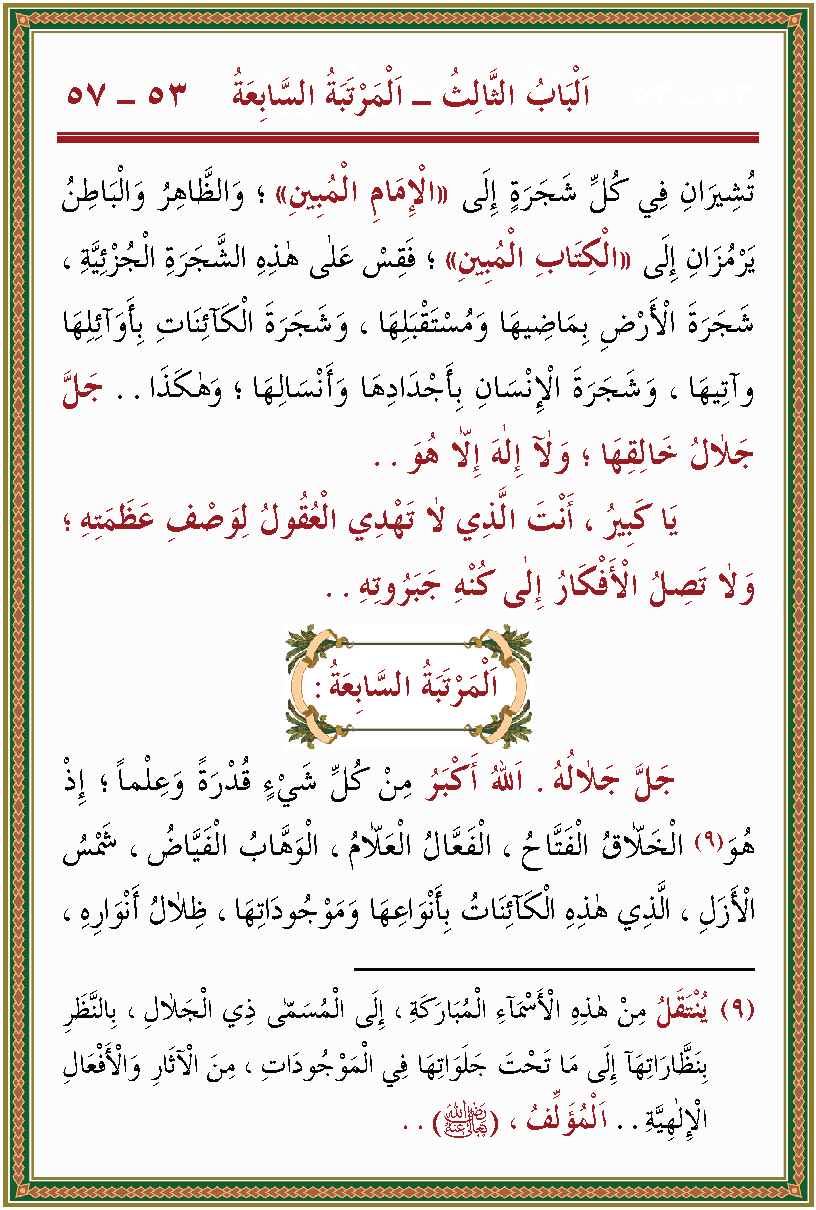 اَلْبَابُ الثَّالِثُ ــ اَلْمَرْتَبَةُ السَّابِعَةُ ٥٣ ــ ٥٧
تُشِيرَانِ فِي كُلِّ شَجَرَةٍ إِلَى «الْإِمَامِ الْمُبِينِ» ؛ وَالظَّاهِرُ وَالْبَاطِنُ
يَرْمُزَانِ إِلَى «الْكِتَابِ الْمُبِينِ» ؛ فَقِسْ عَلٰى هٰذِهِ الشَّجَرَةِ الْجُزْئِيَّةِ ،
شَجَرَةَ الْأَرْضِ بِمَاضِيهَا وَمُسْتَقْبَلِهَا ، وَشَجَرَةَ الْكَآئِنَاتِ بِأَوَآئِلِهَا
وآتِيهَا ، وَشَجَرَةَ الْإِنْسَانِ بِأَجْدَادِهَا وَأَنْسَالِهَا ؛ وَهٰكَذَا . . جَلَّ
جَلَالُ خَالِقِهَا ؛ وَلَآ إِلٰهَ إِلَّا هُوَ . .
يَا كَبِيرُ ، أَنْتَ الَّذِي لَا تَهْدِي الْعُقُولُ لِوَصْفِ عَظَمَتِهِ ؛
وَلَا تَصِلُ الْأَفْكَارُ إِلٰى كُنْهِ جَبَرُوتِهِ . .
اَلْمَرْتَبَةُ السَّابِعَةُ :
جَلَّ جَلَالُهُ . اَللّٰهُ أَكْبَرُ مِنْ كُلِّ شَيْءٍ قُدْرَةً وَعِلْماً ؛ إِذْ
هُوَ(٩) الْخَلَّاقُ الْفَتَّاحُ ، الْفَعَّالُ الْعَلَّامُ ، الْوَهَّابُ الْفَيَّاضُ ، شَمْسُ
الْأَزَلِ ، الَّذِي هٰذِهِ الْكَآئِنَاتُ بِأَنْوَاعِهَا وَمَوْجُودَاتِهَا ، ظِلَالُ أَنْوَارِهِ ،
(٩) يُنْتَقَلُ مِنْ هٰذِهِ الْأَسْمَآءِ الْمُبَارَكَةِ ، إِلَى الْمُسَمّٰى ذِي الْجَلَالِ ، بِالنَّظَرِ
بِنَظَّارَاتِهَآ إِلَى مَا تَحْتَ جَلَوَاتِهَا فِي الْمَوْجُودَاتِ ، مِنَ الْآثَارِ وَالْأَفْعَالِ
الْإِلٰهِيَّةِ . . اَلْمُؤَلِّفُ ، (رَضِيَ اللهُ تَعَالَى عَنْهُ) . .